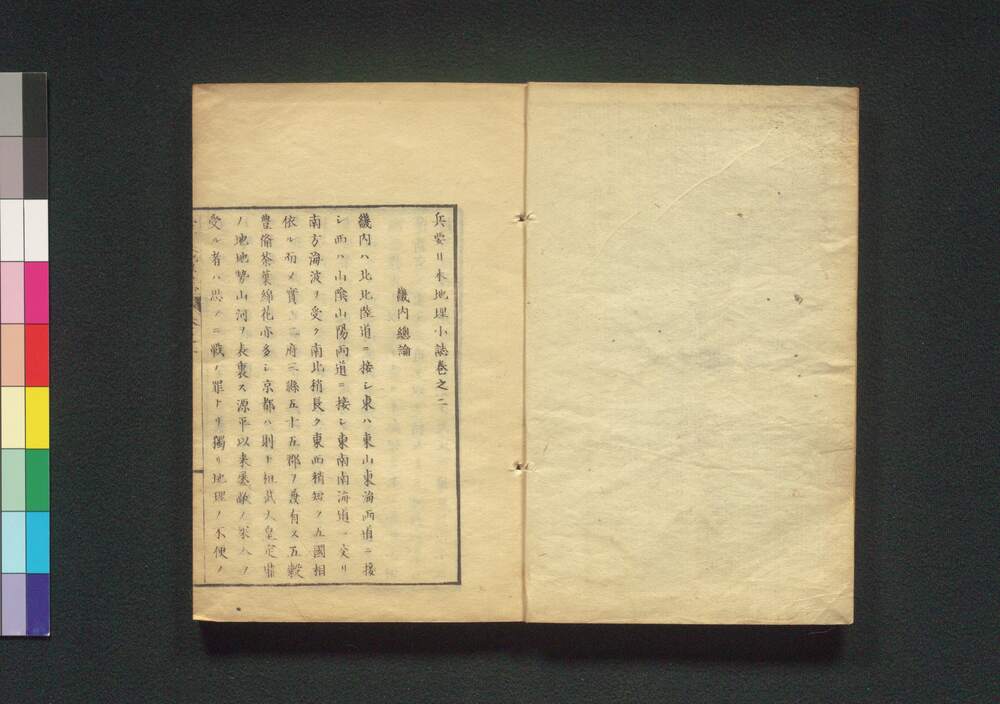 兵要日本地理小誌卷之二
畿内總論
畿内ハ北北陸道ニ接シ東ハ東山東海両道ニ接
シ西ハ山陰山陽両道ニ接シ東南南海道ニ交リ
南方海波ヲ受ク南北稍長ク東西稍短ク五國相
依ル而〆實ニ二府三縣五十五郡ヲ有ス五穀
豊備茶葉綿花亦多シ京都ハ則チ桓武天皇定鼎
ノ地地勢山河ヲ表裏ス源平以来屡敵ノ
受ル者ハ戰ノ罪ナリ獨リ地理ノ不便ノ